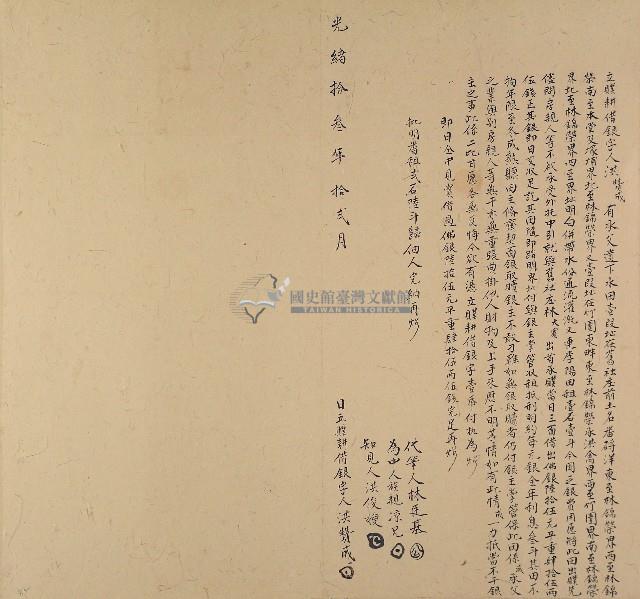 立贌耕借銀字人洪贊成有承父遺下水田壹段址在舊社庄前土名番碍洋東至林錦榮界西至林錦
榮南至本堂及塚埔界北至林錦榮界又壹段址在竹圍東畔東至林錦榮承洪禽界西至竹圍界南至林錦榮
界北至林錦榮界四至界址明白併帶水份通流灌溉又東畔陽田租壹石壹斗今因乏銀費用愿將此田出贌先
儘問房親人等不欲承受外托中引就與舊社庄林大賓出首承贌當日三面借出佛銀陸拾伍元平重肆拾伍兩
伍錢正其銀即日交收足訖其田隨即踏明界址付與銀主掌管收租抵利明約每元銀全年利息叁斗其田不
拘年限至冬成熟聽田主備齊契面銀取贖銀主不敢刁難如無銀取贖者仍付銀主掌管保此田係成承父
之業與別房親人等無干亦無重張典掛他人財物及上手來歷不明為情如有此情成一力抵當不干銀
主之事此係二比甘愿各無反悔今欲有憑立贌耕借銀字壹紙付執為炤
即日仝中見實借過佛銀陸拾伍元平重肆拾伍兩伍錢完足再炤
批明當租弍石陸斗歸佃人完納再炤
代筆人林廷基
為中人族親凉兄
知見人洪俊嫂
日立贌耕借銀字人洪贊成
光緒拾叁年拾弍月
國史館臺灣文獻館
TAIWAN HISTORICA